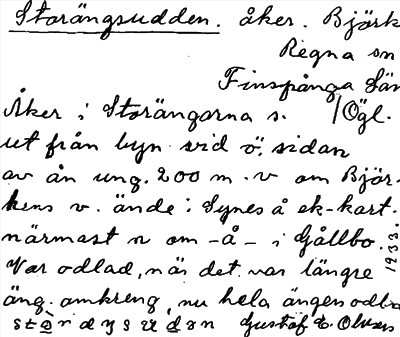 Storängsudden. åker. Björk
Regna sn
Finspånga län
Åker i Storängarna s. /Ögl.
ut från byn vid ö. sidan
av ån ung. 200 m. v om Björ-
kens v. ände. Synes å ek-kart.
närmast n om -å- i Gållbo.
Var odlad, när det var längre
äng. omkring, nu hela ängen odla
Gustaf E. Olsson
1933.